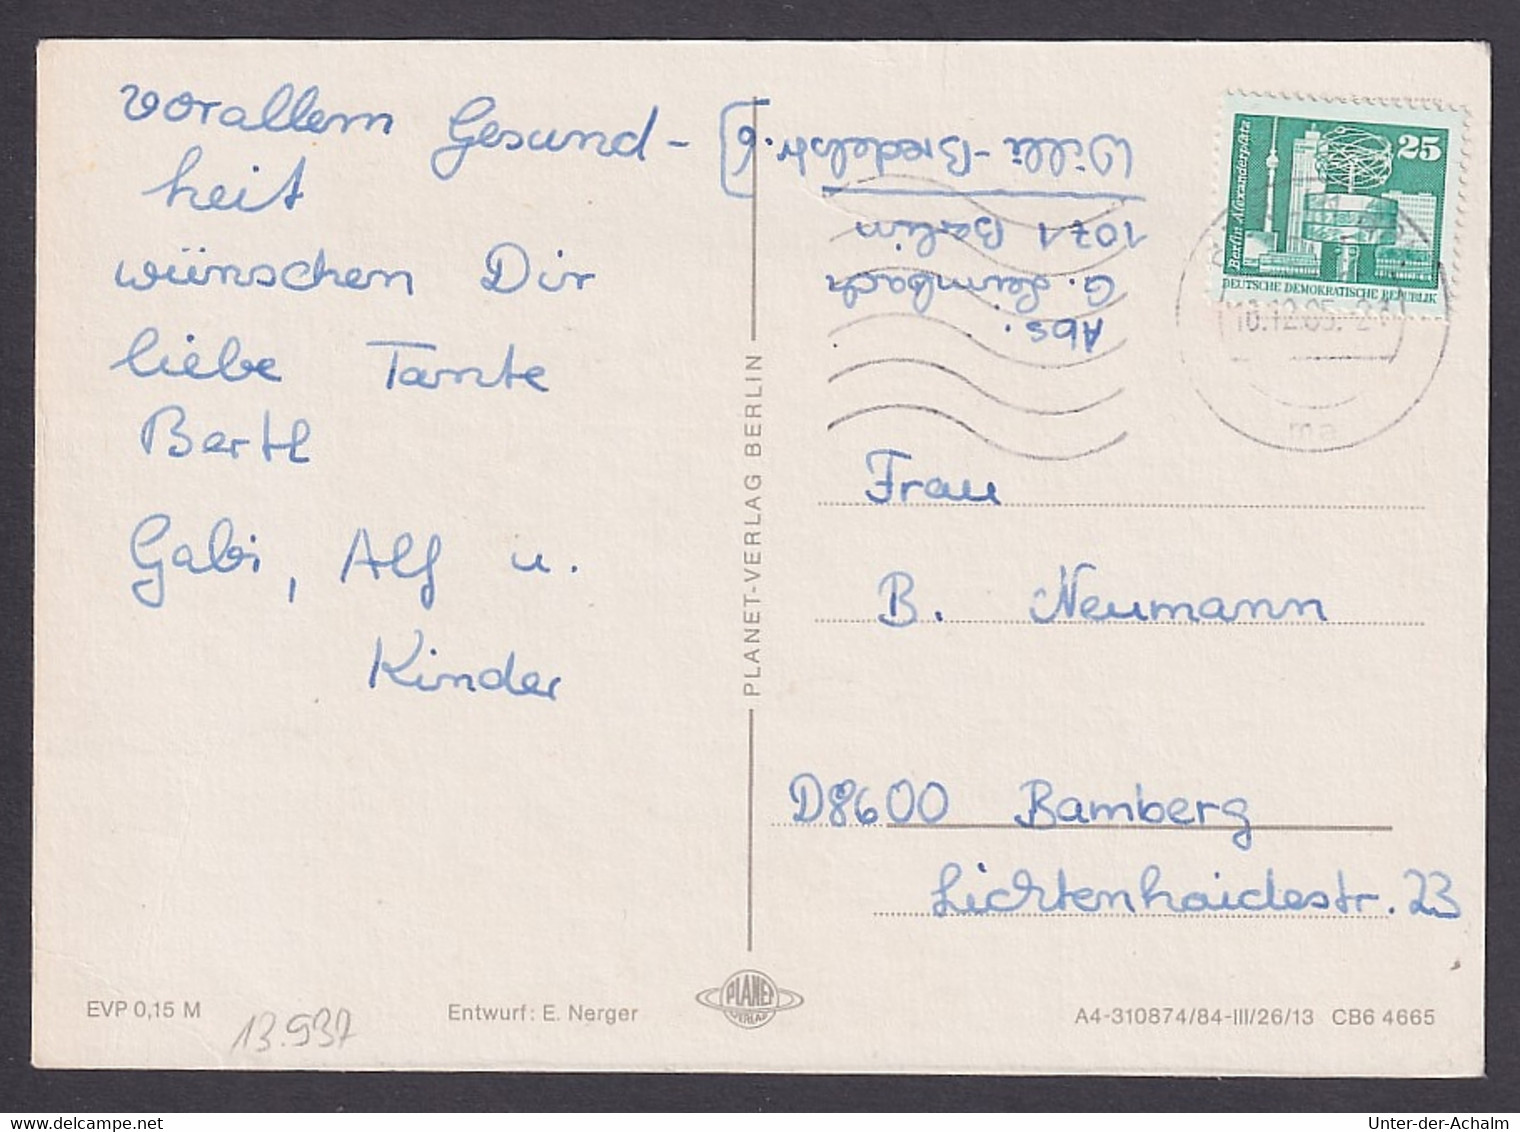 vorallem Gesund-
heit
wünschen Dir
liebe Tante
Bertl
Gabi, Alf u.
Kinder
Abs.
G. Leimbach
1071 Berlin
Willi-Bredelstr. 6
25
Berlin Alexanderplatz
DEUTSCHE DEMOKRATISCHE REPUBLIK
PLANET-VERLAG BERLIN
Frau
B. Neumann
D8600 Bamberg
Lichtenhaidestr. 23
EVP 0,15 M
13.937
Entwurf: E. Nerger
PLANET
VERLAG
A4-310874/84-III/26/13 CB6 4665
Unter-der-Achalm
www.delcampe.net